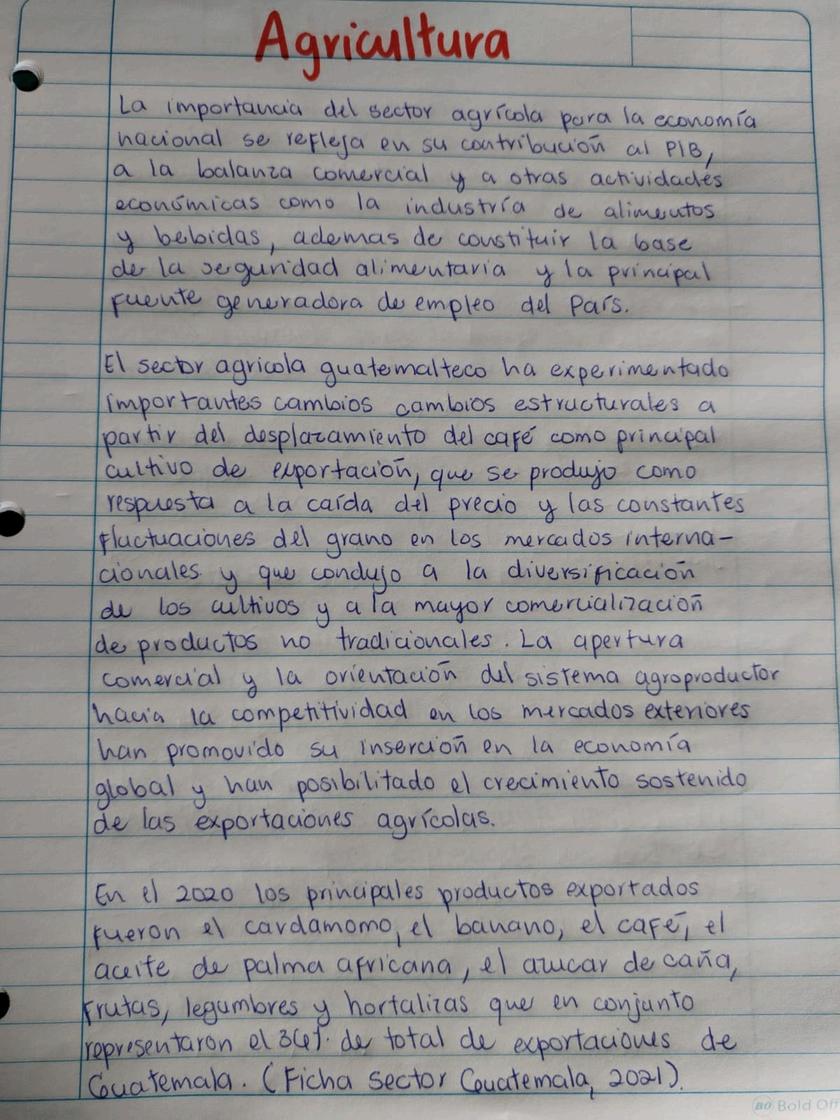 Agricultura
La importancia del sector agrícola para la economía
nacional se refleja en su contribución al PIB,
a la balanza comercial y a otras actividades
económicas como la industria de alimentos
y bebidas, ademas de constituir la base
de la seguridad alimentaria y la principal
fuente generadora de empleo del País.
El sector agricola guatemalteco ha experimentado
importantes cambios cambios estructurales a
partir del desplazamiento del café como principal
cultivo de exportación, que se produjo como
respuesta a la caída del precio y las constantes
fluctuaciones del grano en los mercados interna-
cionales y que condujo a la diversificación
de los cultivos y a la mayor comercialización
de productos no tradicionales. La apertura
comercial y la orientación del sistema agroproductor
hacia la competitividad en los mercados exteriores
han promovido su inserción en la economía
global y han posibilitado el crecimiento sostenido
de las exportaciones agrícolas.
En el 2020 los principales productos exportados
fueron el cardamomo, el banano, el café, el
aceite de palma africana, el azucar de caña,
frutas, legumbres y hortalizas que en conjunto
representaron el de total de exportaciones de
Guatemala. (Ficha Sector Guatemala, 2021).
Bold